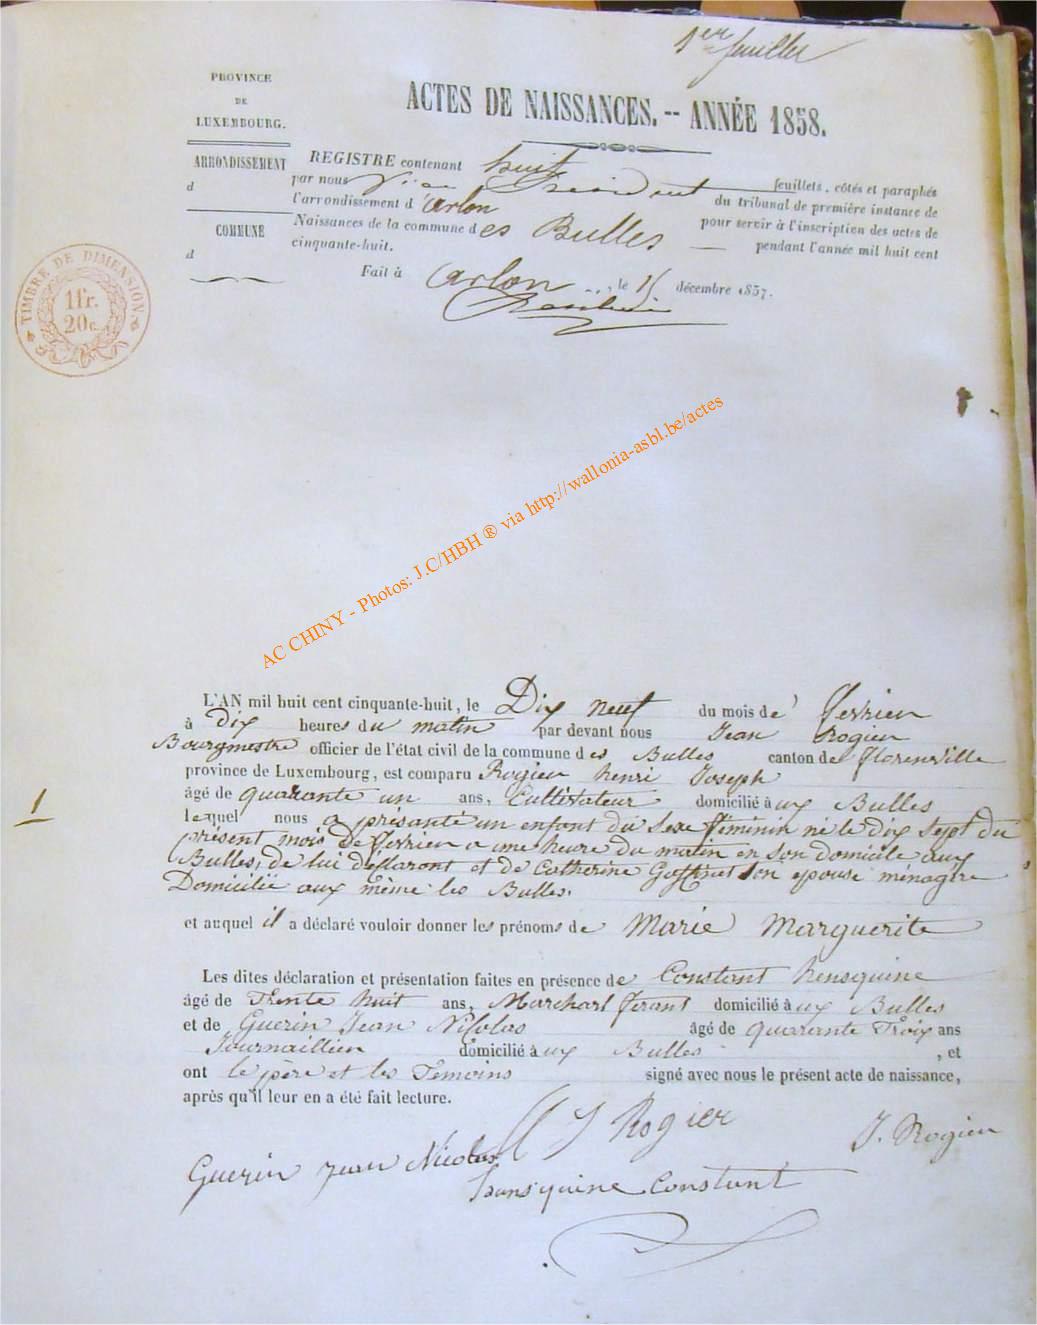 1er feuillet
PROVINCE
DE
LUXEMBOURG.
ARRONDISSEMENT
d
COMMUNE
d
ACTES DE NAISSANCES. -- ANNÉE 1858.
REGISTRE contenant huit feuillets, côtés et paraphés
par nous Vice Président du tribunal de première instance de
l'arrondissement d'arlon pour servir à l'inscription des actes de
Naissances de la commune des Bulles pendant l'année mil huit cent
cinquante-huit.
Fait à Arlon, le 15 décembre 1857.
TIMBRE DE DIMENSION.
1fr.
20c.
AC CHINY - Photos: J.C/HBH ® via http://wallonia-asbl.be/actes
1
L'AN mil huit cent cinquante-huit, le Dix neuf du mois de fevrier
à Dix heures du matin par devant nous Jean Rogier
Bourgmestre officier de l'état civil de la commune des Bulles canton de florenville
province de Luxembourg, est comparu Rogier henri Joseph
âgé de quarante un ans, Cultivateur domicilié aux Bulles
lequel nous a présanté un enfant du sexe féminin né le dix sept du
présent mois De fevrier a une heure du matin en son domicile aux
Bulles, de lui desclaront et de Catherine Goffinet son epouse ménagere
Domiciliée aux même les Bulles.
et auquel il a déclaré vouloir donner les prénoms de Marie Marguerite
Les dites déclaration et présentation faites en présence de Constant hensquine
âgé de Trente huit ans, Marchart ferant domicilié aux Bulles
et de Guerin Jean Nicolas âgé de quarante Troix ans
Journaillier domicilié aux Bulles , et
ont le père et les Témoins signé avec nous le présent acte de naissance,
après qu'il leur en a été fait lecture.
H J Rogier
J. Rogier
Guerin jean Nicolas
hansquine Constant